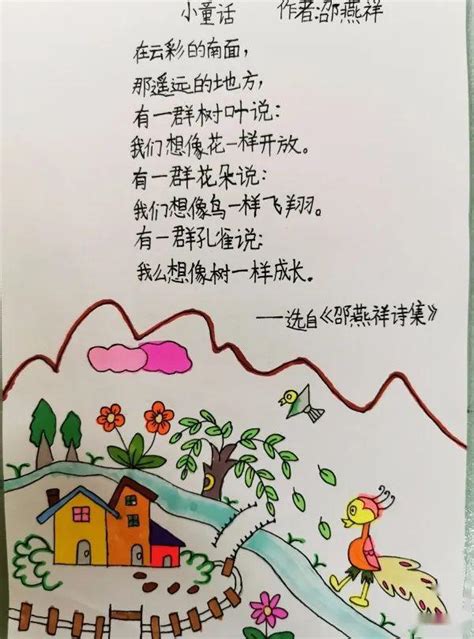 小童话 作者:邵燕祥
在云彩的南面,
那遥远的地方,
有一群树叶说:
我们想像花一样开放。
有一群花朵说:
我们想像鸟一样飞翔。
有一群孔雀说:
我么想像树一样成长。
——选自《邵燕祥诗集》